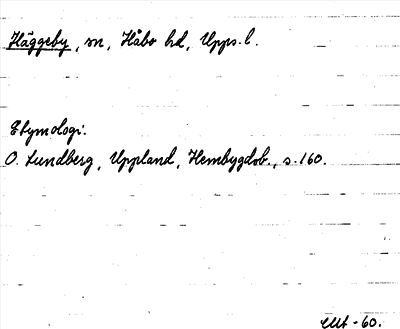 Häggeby, sn, Håbo hd, Upps. l.
Etymologi.
O. Lundberg, Uppland, Hembygdsb., s. 160.
-60.